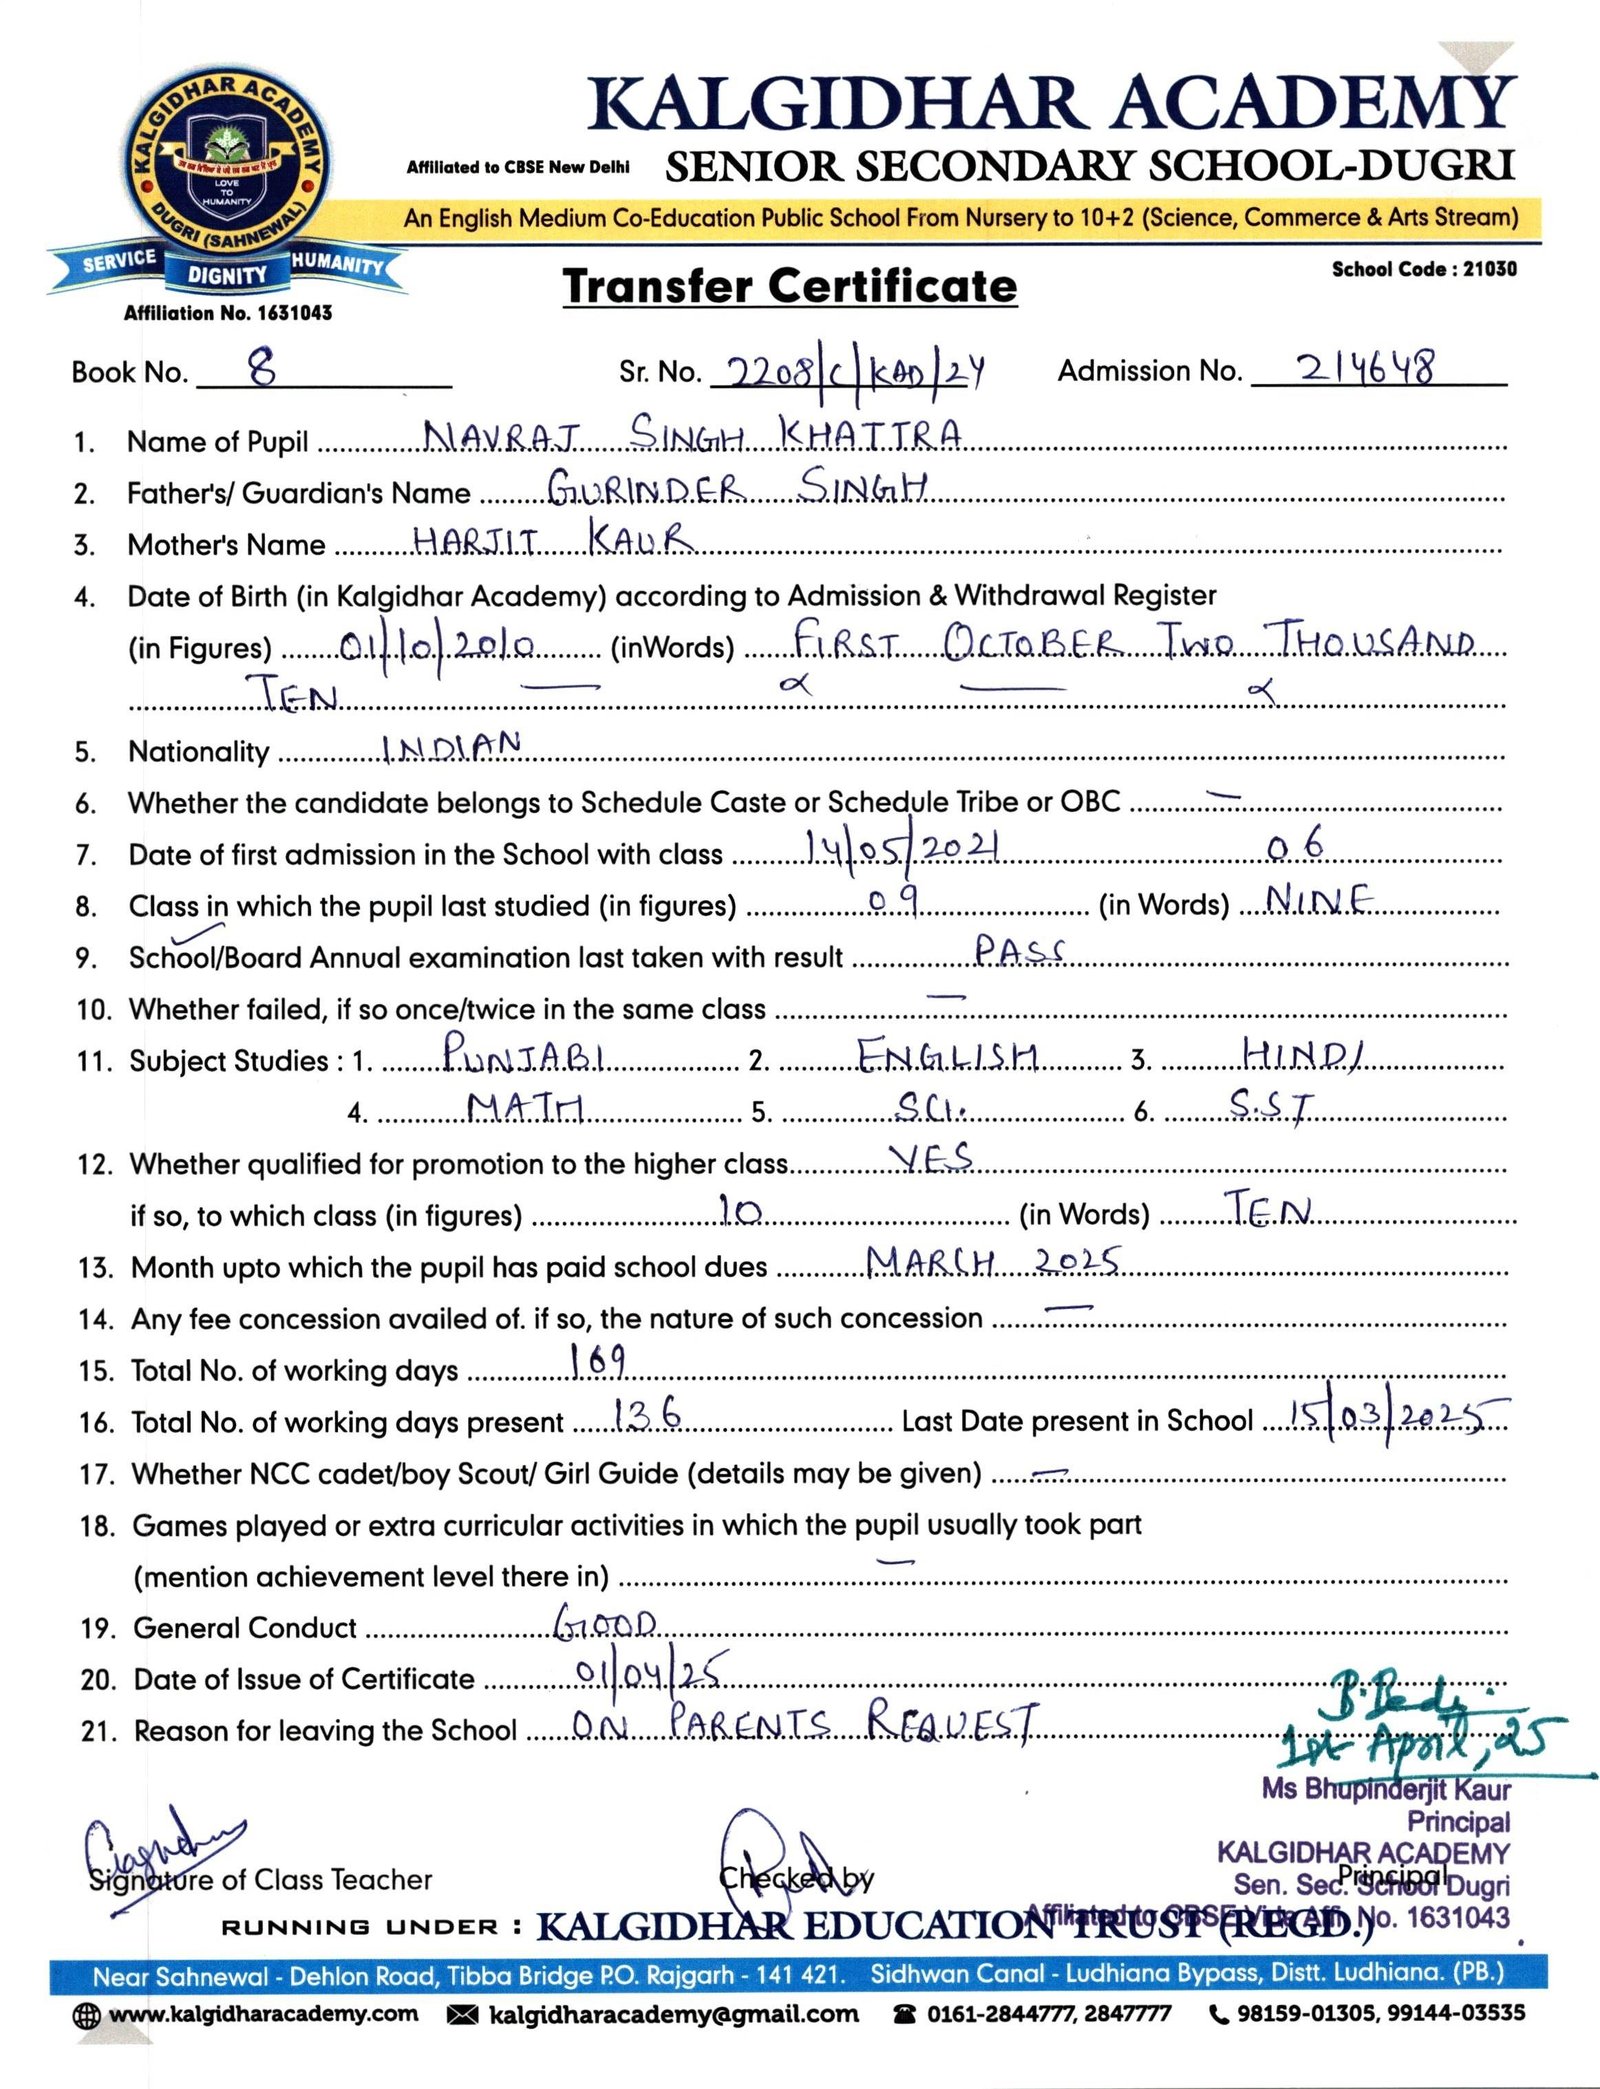 KALGIDHAR ACADEMY
DUGRI (SAHNEWAL)
LOVE
TO
HUMANITY
SERVICE DIGNITY HUMANITY
Affiliation No. 1631043
KALGIDHAR ACADEMY
Affiliated to CBSE New Delhi SENIOR SECONDARY SCHOOL-DUGRI
An English Medium Co-Education Public School From Nursery to 10+2 (Science, Commerce & Arts Stream)
School Code : 21030
Transfer Certificate
Book No. 8 Sr. No. 2208/C/KAD/24 Admission No. 214648
1. Name of Pupil NAVRAJ SINGH KHATTRA
2. Father's/ Guardian's Name GURINDER SINGH
3. Mother's Name HARJIT KAUR
4. Date of Birth (in Kalgidhar Academy) according to Admission & Withdrawal Register
(in Figures) 01/10/2010 (inWords) FIRST OCTOBER TWO THOUSAND
TEN
5. Nationality INDIAN
6. Whether the candidate belongs to Schedule Caste or Schedule Tribe or OBC —
7. Date of first admission in the School with class 14/05/2021 06
8. Class in which the pupil last studied (in figures) 09 (in Words) NINE
9. School/Board Annual examination last taken with result PASS
10. Whether failed, if so once/twice in the same class —
11. Subject Studies : 1. PUNJABI 2. ENGLISH 3. HINDI
4. MATH 5. SCI. 6. S.ST
12. Whether qualified for promotion to the higher class YES
if so, to which class (in figures) 10 (in Words) TEN
13. Month upto which the pupil has paid school dues MARCH 2025
14. Any fee concession availed of. if so, the nature of such concession —
15. Total No. of working days 169
16. Total No. of working days present 136 Last Date present in School 15/03/2025
17. Whether NCC cadet/boy Scout/ Girl Guide (details may be given) —
18. Games played or extra curricular activities in which the pupil usually took part
(mention achievement level there in) —
19. General Conduct GOOD
20. Date of Issue of Certificate 01/04/25
21. Reason for leaving the School ON PARENTS REQUEST
B. Bedi
1st April, 25
Ms Bhupinderjit Kaur
Principal
KALGIDHAR ACADEMY
Sen. Sec. School Dugri
Affiliated to CBSE Vide Affi. No. 1631043
Signature of Class Teacher Checked by Principal
RUNNING UNDER : KALGIDHAR EDUCATION TRUST (REGD.)
Near Sahnewal - Dehlon Road, Tibba Bridge P.O. Rajgarh - 141 421. Sidhwan Canal - Ludhiana Bypass, Distt. Ludhiana. (PB.)
www.kalgidharacademy.com kalgidharacademy@gmail.com 0161-2844777, 2847777 98159-01305, 99144-03535